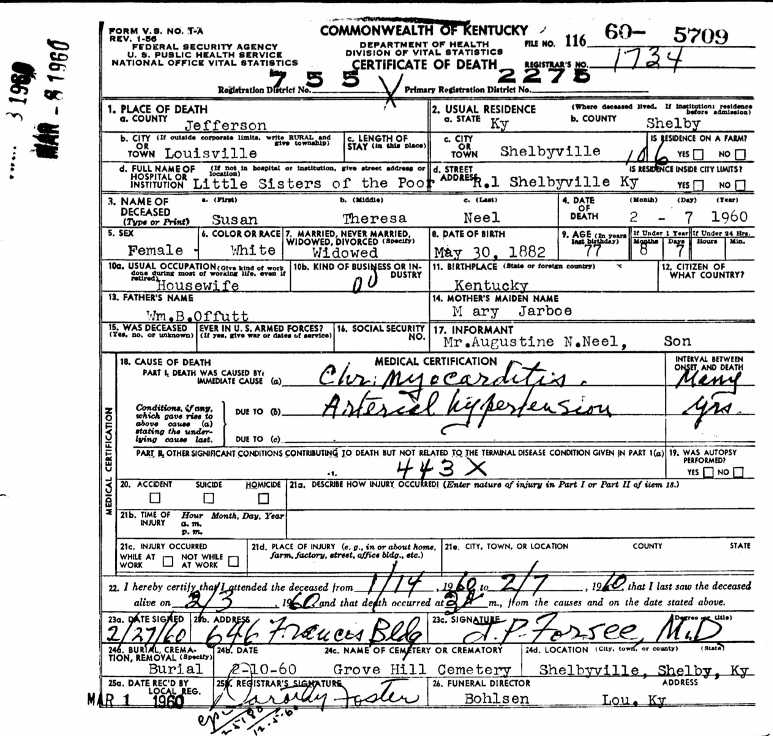 FORM V.S. NO. T-A
REV. 1-56
FEDERAL SECURITY AGENCY
U. S. PUBLIC HEALTH SERVICE
NATIONAL OFFICE VITAL STATISTICS
COMMONWEALTH OF KENTUCKY
DEPARTMENT OF HEALTH
DIVISION OF VITAL STATISTICS
CERTIFICATE OF DEATH
FILE NO. 116 60- 5709
REGISTRAR'S NO. 1734
Registration District No. 755 Primary Registration District No. 2275
MAR - 8 1960
1. PLACE OF DEATH
a. COUNTY Jefferson
2. USUAL RESIDENCE (Where deceased lived. If institution: residence before admission)
a. STATE Ky b. COUNTY Shelby
b. CITY (If outside corporate limits, write RURAL and give township) OR TOWN Louisville
c. LENGTH OF STAY (in this place)
c. CITY OR TOWN Shelbyville
IS RESIDENCE ON A FARM?
106 YES NO
d. FULL NAME OF (If not in hospital or institution, give street address or location) HOSPITAL OR INSTITUTION Little Sisters of the Poor
d. STREET ADDRESS R.1 Shelbyville Ky
IS RESIDENCE INSIDE CITY LIMITS?
YES NO
3. NAME OF DECEASED (Type or Print)
a. (First) Susan b. (Middle) Theresa c. (Last) Neel
4. DATE OF DEATH (Month) (Day) (Year)
2 - 7 1960
5. SEX Female
6. COLOR OR RACE White
7. MARRIED, NEVER MARRIED, WIDOWED, DIVORCED (Specify) Widowed
8. DATE OF BIRTH May 30, 1882
9. AGE (In years last birthday) 77
If Under 1 Year Months 8 Days 7
If Under 24 Hrs. Hours Min.
10a. USUAL OCCUPATION (Give kind of work done during most of working life, even if retired) Housewife
10b. KIND OF BUSINESS OR INDUSTRY 00
11. BIRTHPLACE (State or foreign country) Kentucky
12. CITIZEN OF WHAT COUNTRY?
13. FATHER'S NAME Wm.B.Offutt
14. MOTHER'S MAIDEN NAME M ary Jarboe
15. WAS DECEASED EVER IN U. S. ARMED FORCES? (Yes, no, or unknown) (If yes, give war or dates of service)
16. SOCIAL SECURITY NO.
17. INFORMANT Mr.Augustine N.Neel, Son
MEDICAL CERTIFICATION
18. CAUSE OF DEATH
PART I. DEATH WAS CAUSED BY:
IMMEDIATE CAUSE (a) Chr. Myocarditis.
MEDICAL CERTIFICATION
INTERVAL BETWEEN ONSET AND DEATH
Many yrs.
Conditions, if any, which gave rise to above cause (a) stating the underlying cause last.
DUE TO (b) Arterial hypertension
DUE TO (c)
PART II. OTHER SIGNIFICANT CONDITIONS CONTRIBUTING TO DEATH BUT NOT RELATED TO THE TERMINAL DISEASE CONDITION GIVEN IN PART 1(a)
443X
19. WAS AUTOPSY PERFORMED?
YES NO
20. ACCIDENT SUICIDE HOMICIDE
21a. DESCRIBE HOW INJURY OCCURRED! (Enter nature of injury in Part I or Part II of item 18.)
21b. TIME OF INJURY Hour Month, Day, Year
a. m.
p. m.
21c. INJURY OCCURRED
WHILE AT WORK NOT WHILE AT WORK
21d. PLACE OF INJURY (e. g., in or about home, farm, factory, street, office bldg., etc.)
21e. CITY, TOWN, OR LOCATION COUNTY STATE
22. I hereby certify that I attended the deceased from 1/14, 1960 to 2/7, 1960, that I last saw the deceased
alive on 2/3 1960 and that death occurred at m., from the causes and on the date stated above.
23a. DATE SIGNED 2/27/60
23b. ADDRESS 646 Francis Bldg
23c. SIGNATURE (Degree or title) J.P. Forsee, M.D
24a. BURIAL, CREMATION, REMOVAL (Specify) Burial
24b. DATE 2-10-60
24c. NAME OF CEMETERY OR CREMATORY Grove Hill Cemetery
24d. LOCATION (City, town, or county) (State) Shelbyville, Shelby, Ky
25a. DATE REC'D BY LOCAL REG. MAR 1 1960
25b. REGISTRAR'S SIGNATURE Dorothy Foster
26. FUNERAL DIRECTOR Bohlsen
ADDRESS Lou. Ky